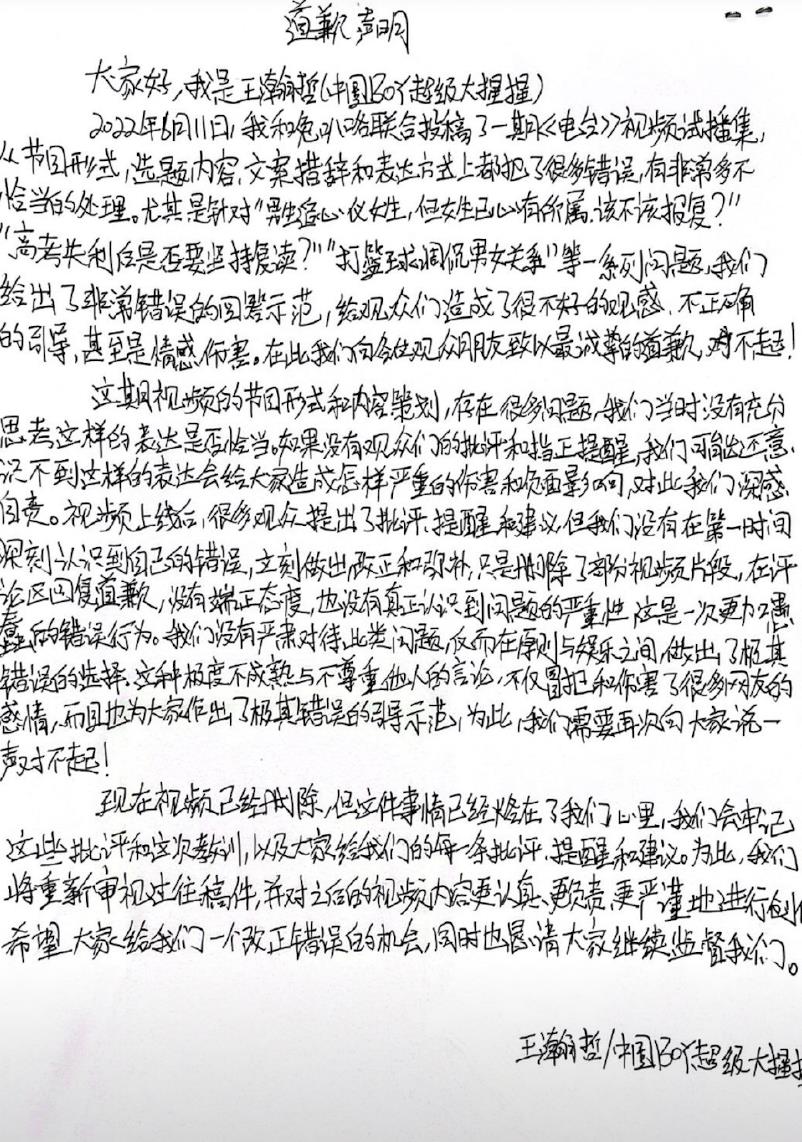 道歉声明
大家好,我是王瀚哲(中国BOY超级大猩猩)
2022年6月11日,我和兔叭咯联合投稿了一期《电台》视频试播集,
从节目形式,选题内容、文案措辞和表达方式上都犯了很多错误,有非常多不
恰当的处理。尤其是针对“男生追心仪女生,但女生已心有所属,该不该报复?”
“高考失利后是否要坚持复读?”“打篮球调侃男女关系”等一系列问题,我们
给出了非常错误的回答示范,给观众们造成了很不好的观感、不正确
的引导,甚至是情感伤害。在此我们向各位观众朋友致以最诚挚的道歉,对不起!
这期视频的节目形式和内容策划,存在很多问题,我们当时没有充分
思考这样的表达是否恰当。如果没有观众们的批评和指正提醒,我们可能还意
识不到这样的表达会给大家造成怎样严重的伤害和负面影响,对此我们深感
自责。视频上线后,很多观众提出了批评、提醒和建议,但我们没有在第一时间
深刻认识到自己的错误,立刻做出改正和弥补,只是删除了部分视频片段,在评
论区回复道歉,没有端正态度,也没有真正认识到问题的严重性,这是一次更加愚
蠢的错误行为。我们没有严肃对待此类问题,反而在原则与娱乐之间,做出了极其
错误的选择。这种极度不成熟与不尊重他人的言论,不仅冒犯和伤害了很多网友的
感情,而且也为大家作出了极其错误的引导示范,为此,我们需要再次向大家说一
声对不起!
现在视频已经删除,但这件事情已经烙在了我们心里,我们会牢记
这些批评和这次教训,以及大家给我们的每一条批评、提醒和建议。为此,我们
将重新审视过往稿件,并对之后的视频内容更认真、更负责、更严谨地进行创
希望大家给我们一个改正错误的机会,同时也恳请大家继续监督我们。
王瀚哲/中国BOY超级大猩